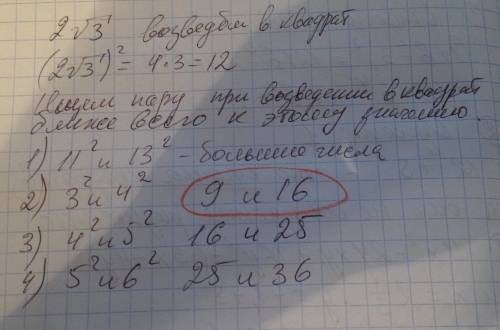 2√3 возведём в квадрат
(2√3)² = 4·3=12
Ищем пару при возведении в квадрат
ближе всего к этому значению.
1) 11² и 13² - большие числа
2) 3² и 4² 9 и 16
3) 4² и 5² 16 и 25
4) 5² и 6² 25 и 36